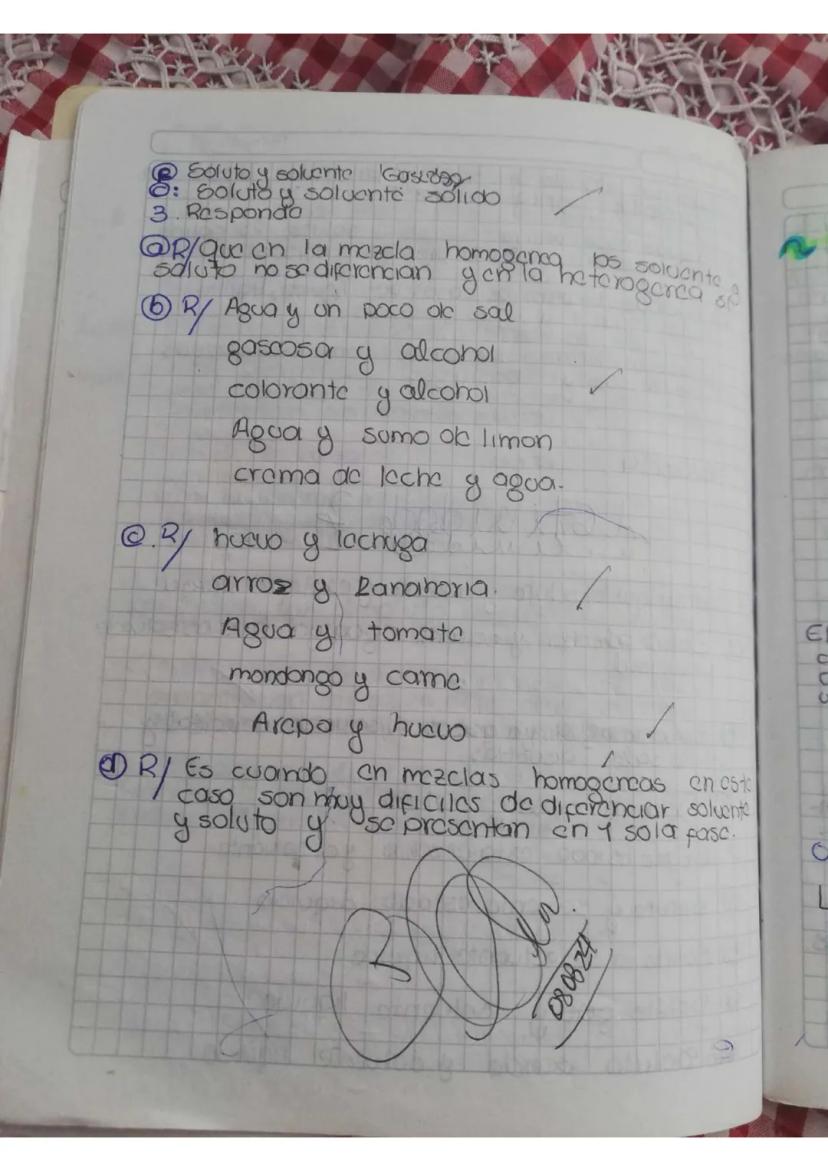 ⓔ Soluto y solvente Gaseoso
O: Soluto y solvente solido
3. Respondo
ⓐ R/ que en la mezcla homogenea los solvente y
soluto no se diferencian y en la heterogenea si
ⓑ R/ Agua y un poco de sal
gascosa y alcohol
colorante y alcohol
Agua y sumo de limon
crema de leche y agua.
ⓒ. R/ huevo y lechuga
arroz y Zanahoria.
Agua y tomate
mondongo y carne
Arepa y huevo
ⓓ R/ Es cuando en mezclas homogéneas en este
caso son muy dificiles de diferenciar solvente
y soluto y se presentan en 1 sola fase.
080824